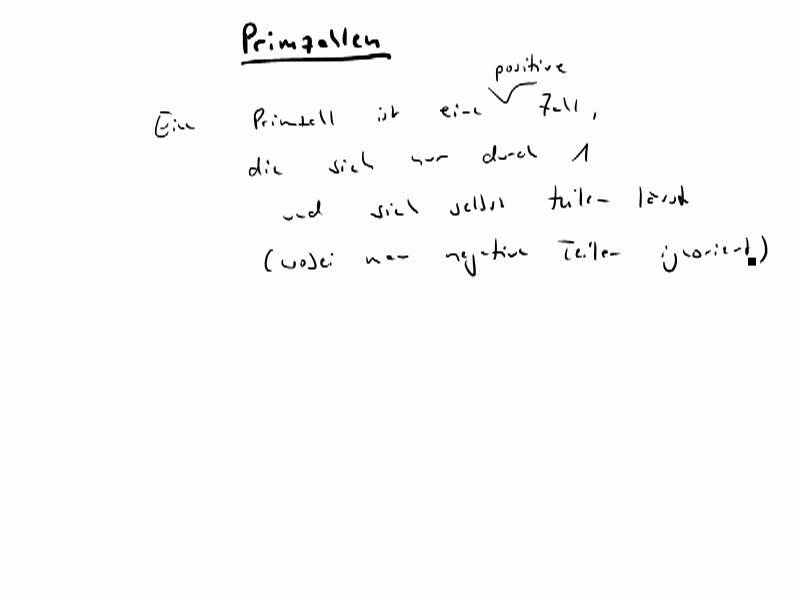 Primzahlen
positive
Eine Primzahl ist eine Zahl,
die sich nur durch 1
und sich selbst teilen lässt
(wobei man negative Teiler ignoriert)